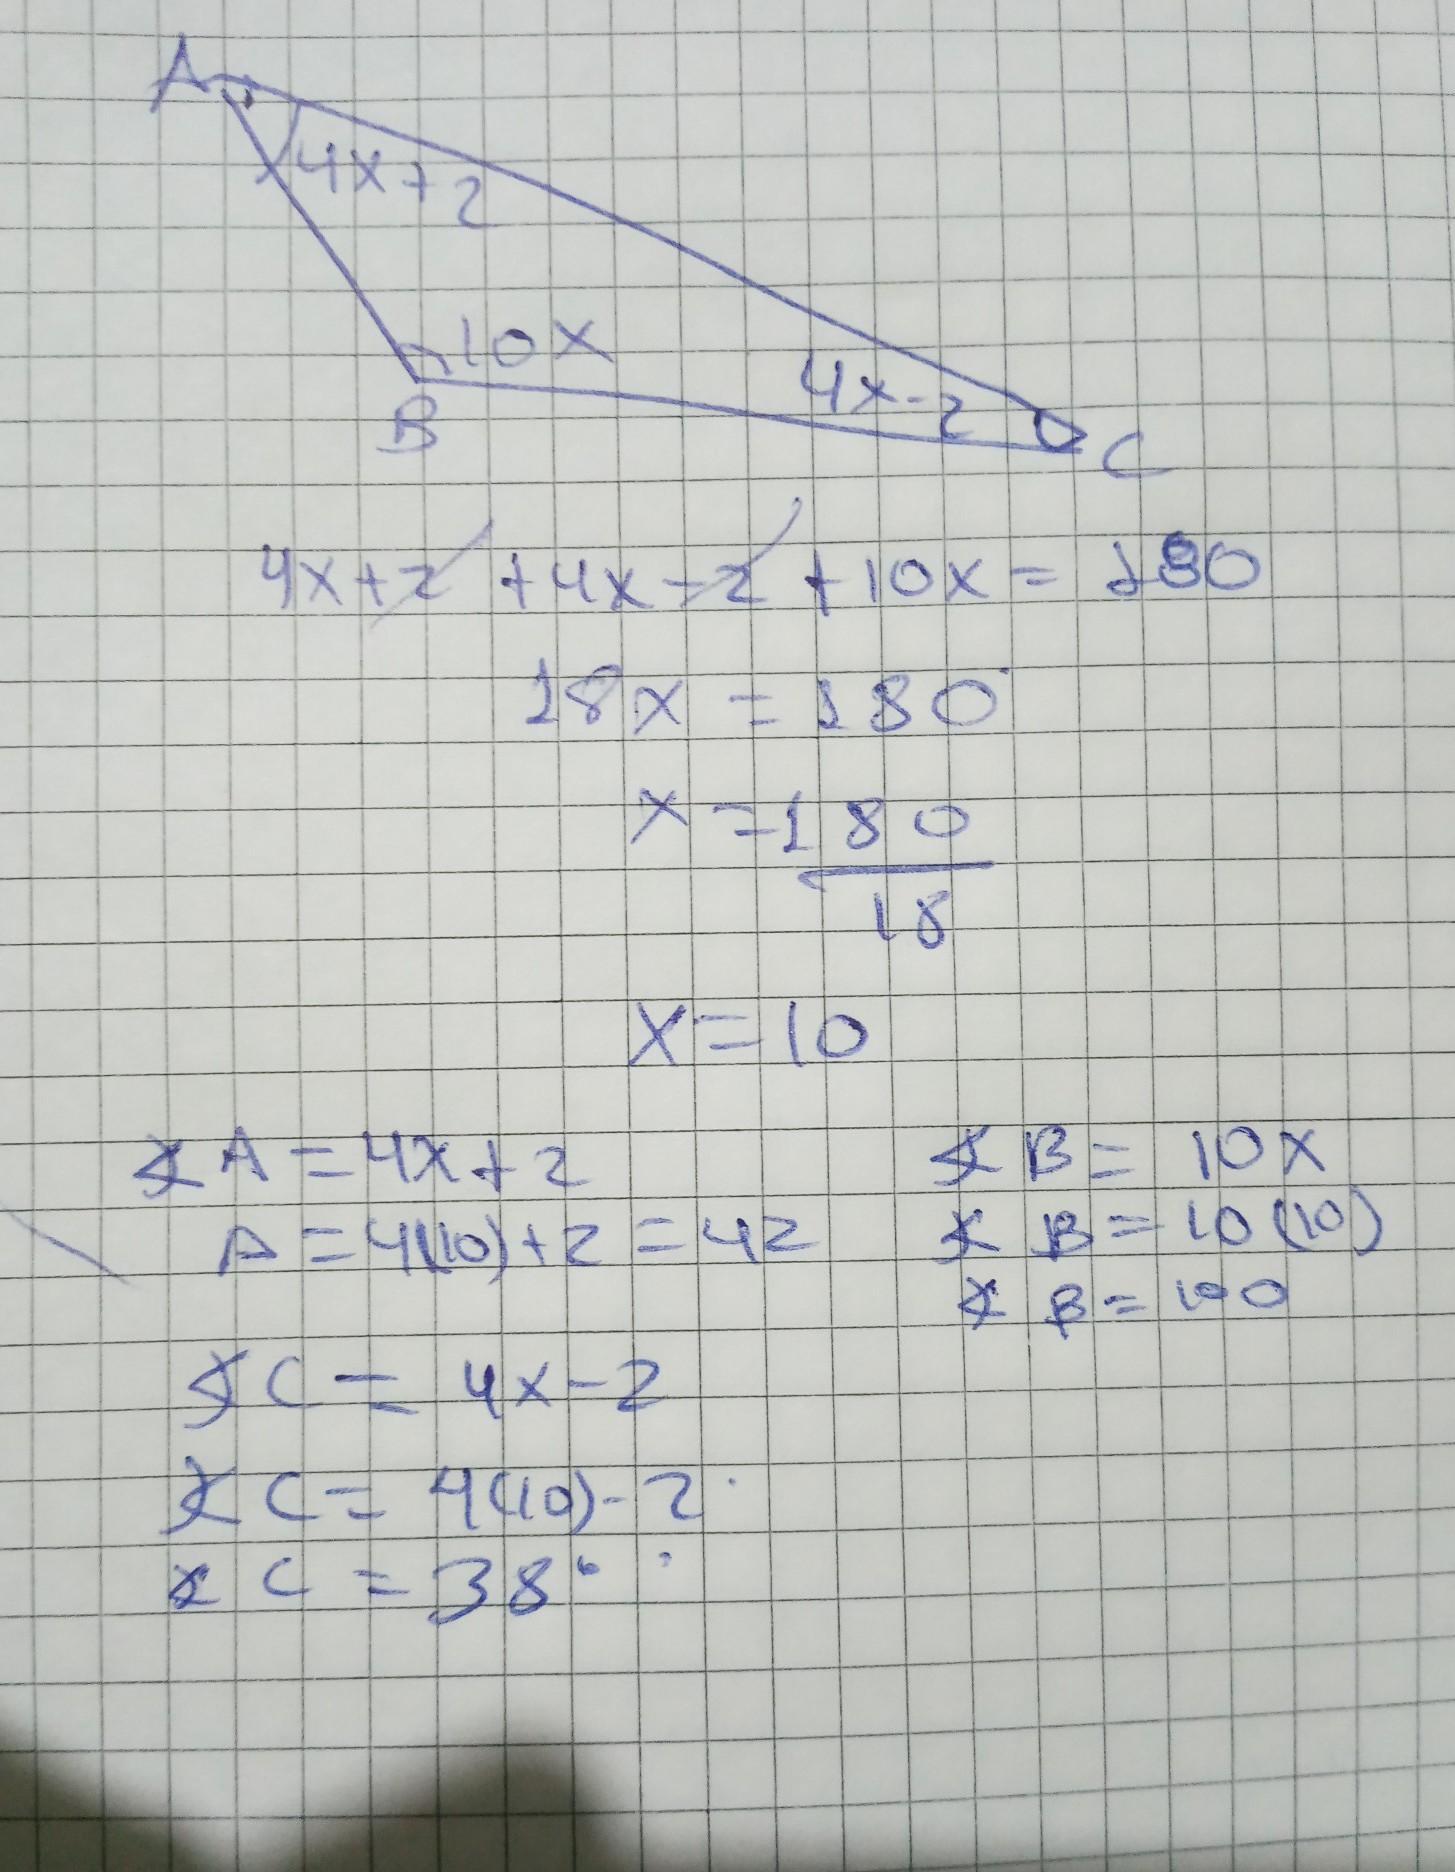 A
4x+2
10x
4x-2
B
C
4x+2+4x-2+10x=180
18x=180
x=180
18
x=10
∡A=4x+2
A=4(10)+2=42
∡B=10x
∡B=10(10)
∡B=100
∡C=4x-2
∡C=4(10)-2
∡C=38°